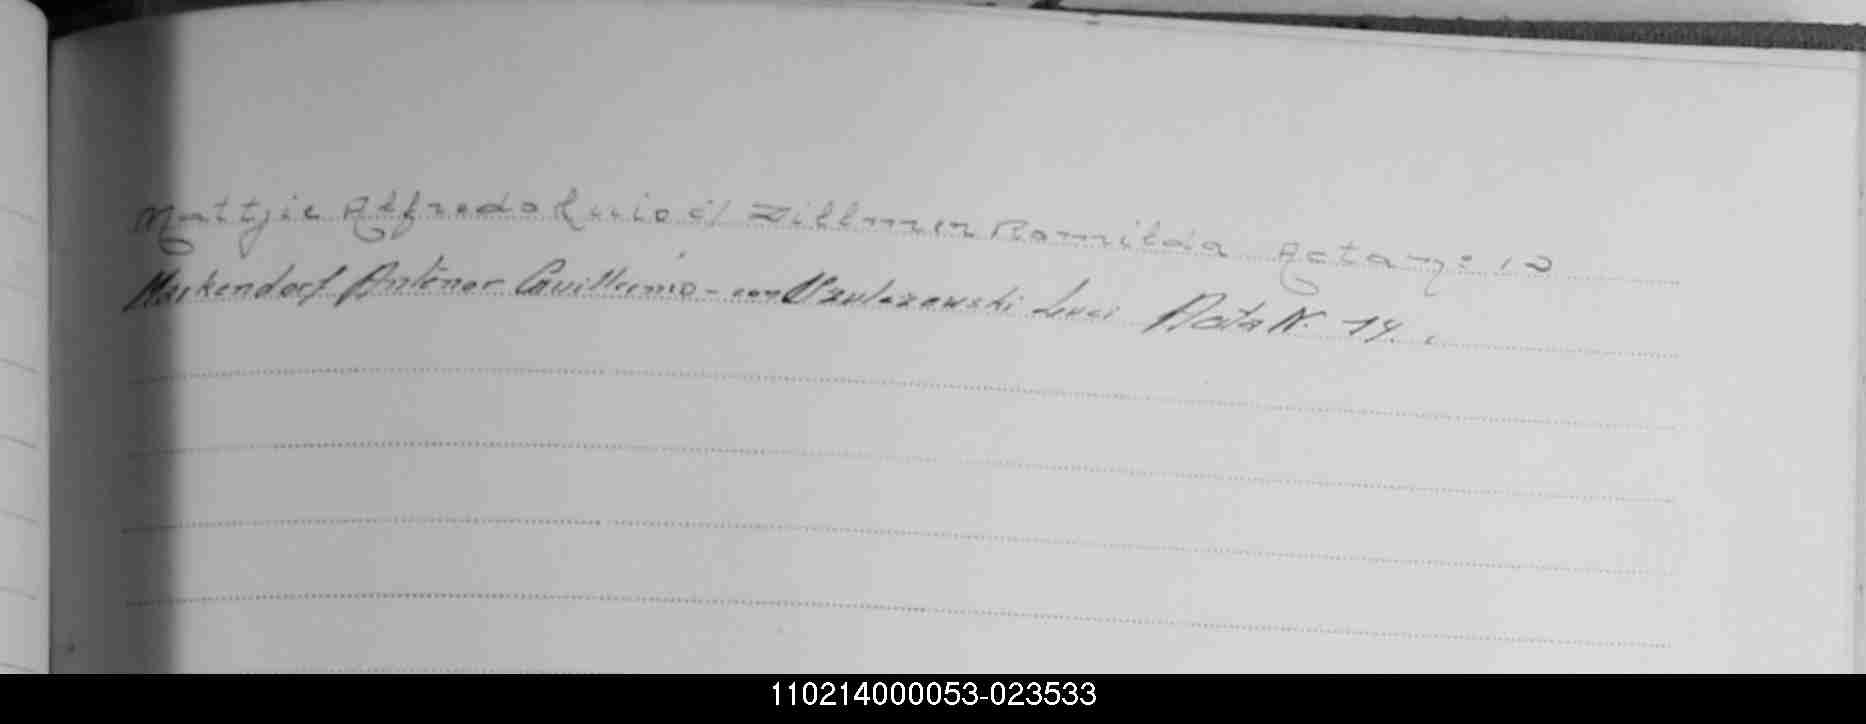 Mattjie Alfredo Lucio c/ Zillmer Romilda Acta nº: 12
Markendorf Antenor Guillermo - con Uzulazewski Luci Acta N. 14.
110214000053-023533